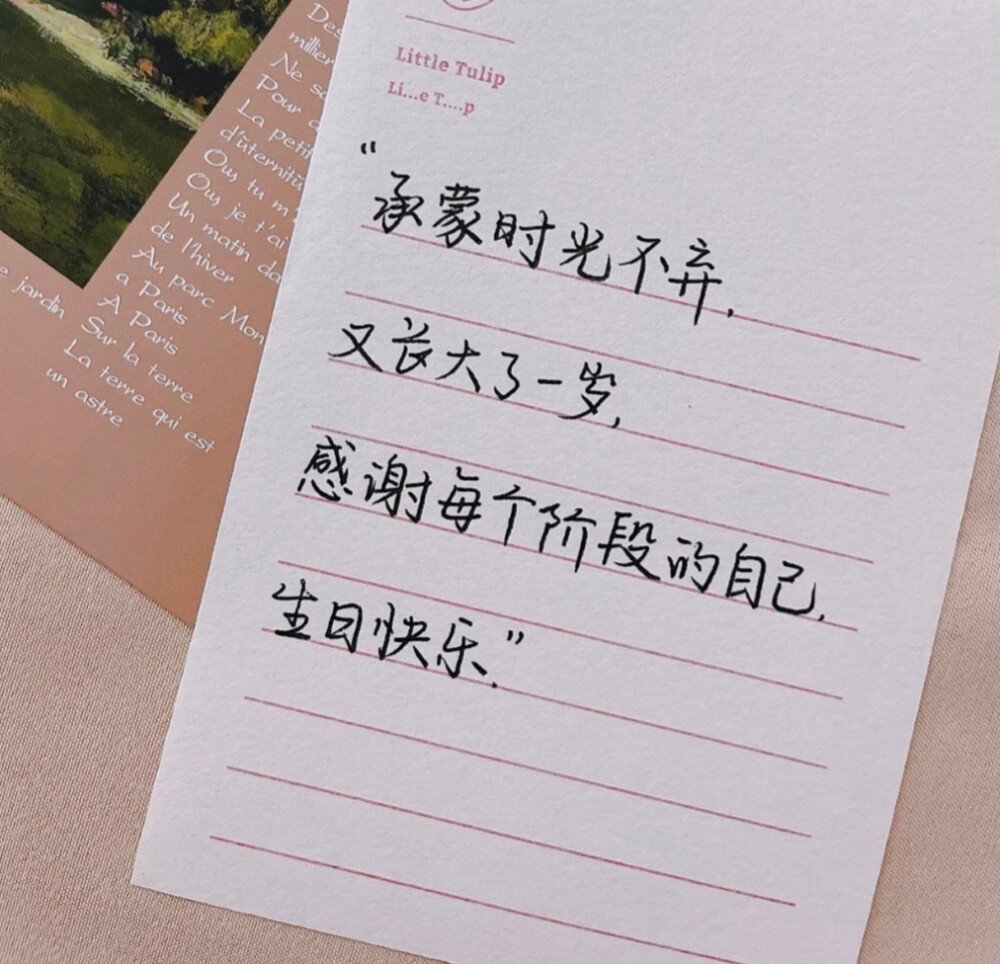 Little Tulip
Li...e T....p
“
承蒙时光不弃.
又长大了一岁.
感谢每个阶段的自己.
生日快乐.”
Des
millier
Ne
Pour
La petit
d'üternitü
Ou, tu m'
Ou, je t'ai
Un matin da
de l'hiver
Au parc Mon
a Paris
A Paris
jardin Sur la terre
La terre qui est
un astre